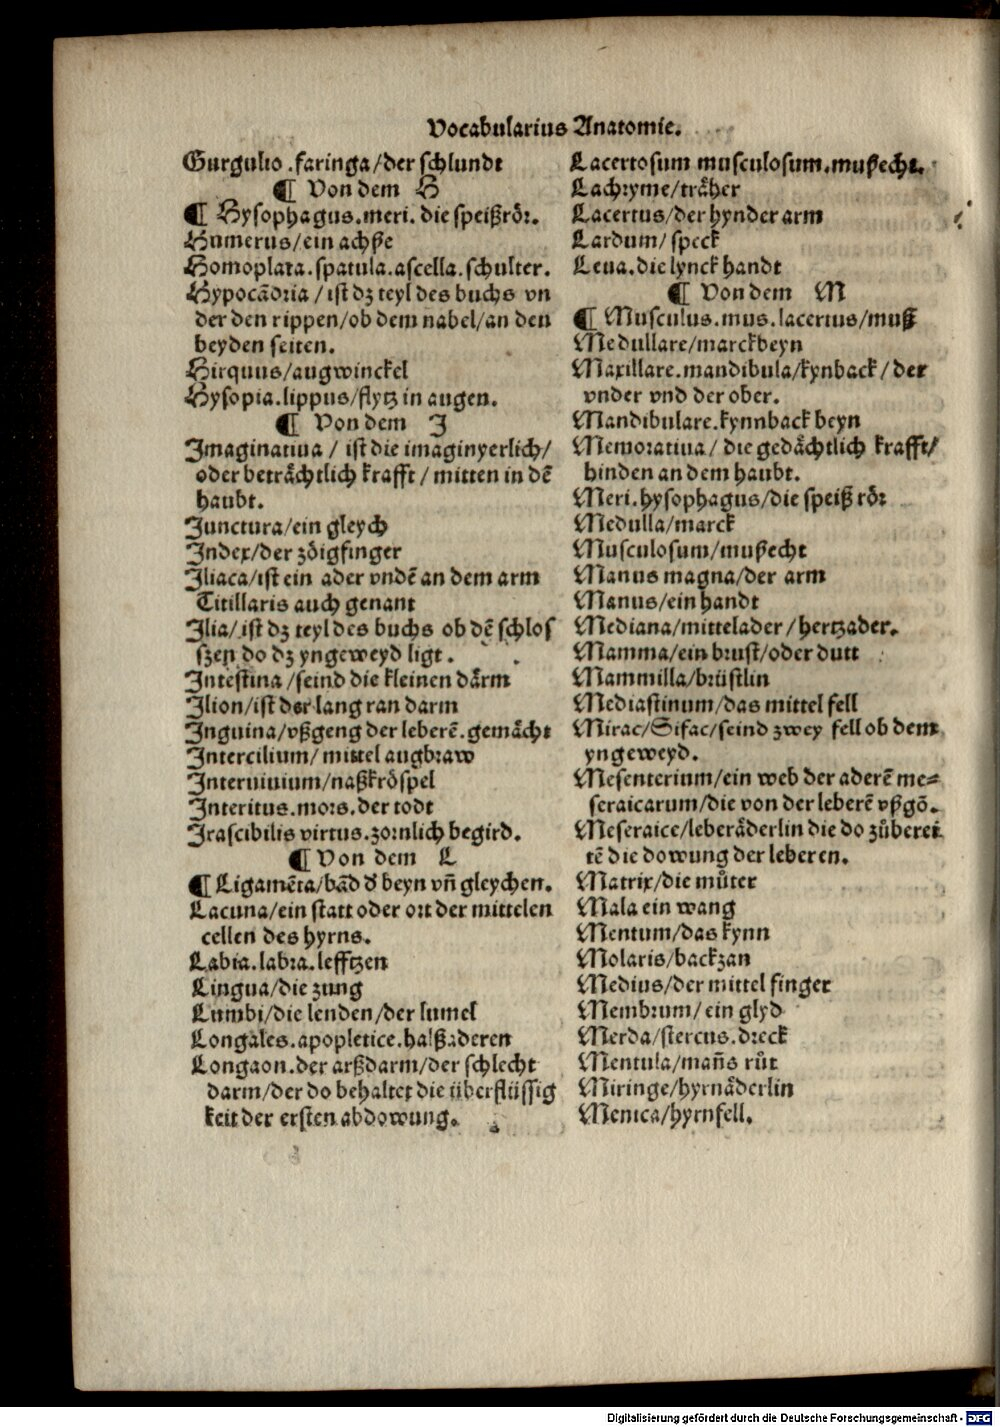 Vocabularius Anatomie.
Gurgulio .faringa/der schlundt
¶ Von dem H
¶ Hysophagus.meri. die speißrőr.
Humerus/ein achße
Homoplata.spatula.ascella.schulter.
Hypocãdria / ist dz teyl des buchs vn
der den rippen/ob dem nabel/an den
beyden seiten.
Hirquus/augwinckel
Hysopia.lippus/flytz in augen.
¶ Von dem J
Imaginatiua / ist die imaginyerlich/
oder beträchtlich krafft / mitten in dẽ
haubt.
Junctura/ein gleych
Index/der zöigfinger
Iliaca/ist ein ader vndẽ an dem arm
Titillaris auch genant
Ilia/ist dz teyl des buchs ob dẽ schlos
szen do dz yngeweyd ligt.
Intestina /seind die kleinen därm
Ilion/ist der lang ran darm
Inguina/vßgeng der leberẽ.gemächt
Intercilium/ mittel augbraw
Interuiuium/naßkröspel
Interitus.mors.der todt
Irascibilis virtus.zornlich begird.
¶ Von dem L
¶ Ligamẽta/bãd d beyn vñ gleychen.
Lacuna/ein statt oder ort der mittelen
cellen des hyrns.
Labia.labra.lefftzen
Lingua/die zung
Lumbi/die lenden/der lumel
Longales.apopletice.halßaderen
Longaon.der arßdarm/der schlecht
darm/der do behaltet die überflüssig
keit der ersten abdowung.
Lacertosum musculosum.mußecht.
Lachryme/träher
Lacertus/der hynder arm
Lardum/ speck
Leua.die lynck handt
¶ Von dem M
¶ Musculus.mus.lacertus/muß
Medullare/marckbeyn
Maxillare.mandibula/kynback / der
vnder vnd der ober.
Mandibulare.kynnback beyn
Memoratiua / die gedächtlich krafft/
hinden an dem haubt.
Meri.hysophagus/die speiß rör
Medulla/marck
Musculosum/mußecht
Manus magna/der arm
Manus/ein handt
Mediana/mittelader / hertzader.
Mamma/ein brust/oder dutt
Mammilla/brüstlin
Mediastinum/das mittel fell
Mirac/Sifac/seind zwey fell ob dem
yngeweyd.
Mesenterium/ein web der aderẽ me=
seraicarum/die von der leberẽ vßgõ.
Meseraice/leberäderlin die do zůberei
tẽ die dowung der leberen.
Matrix/die můter
Mala ein wang
Mentum/das kynn
Molaris/backzan
Medius/der mittel finger
Membrum/ ein glyd
Merda/stercus.dreck
Mentula/mañs růt
Miringe/hyrnäderlin
Menica/hyrnfell.
Digitalisierung gefördert durch die Deutsche Forschungsgemeinschaft - DFG